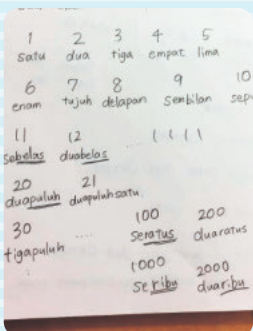 1 2 3 4 5
satu dua tiga empat lima
6 7 8 9 10
enam tujuh delapan sembilan sepu
11 12 1111
sebelas duabelas
20 21
duapuluh duapuluhsatu.
30 ....
tigapuluh
100 200
seratus duaratus
1000 2000
seribu duaribu